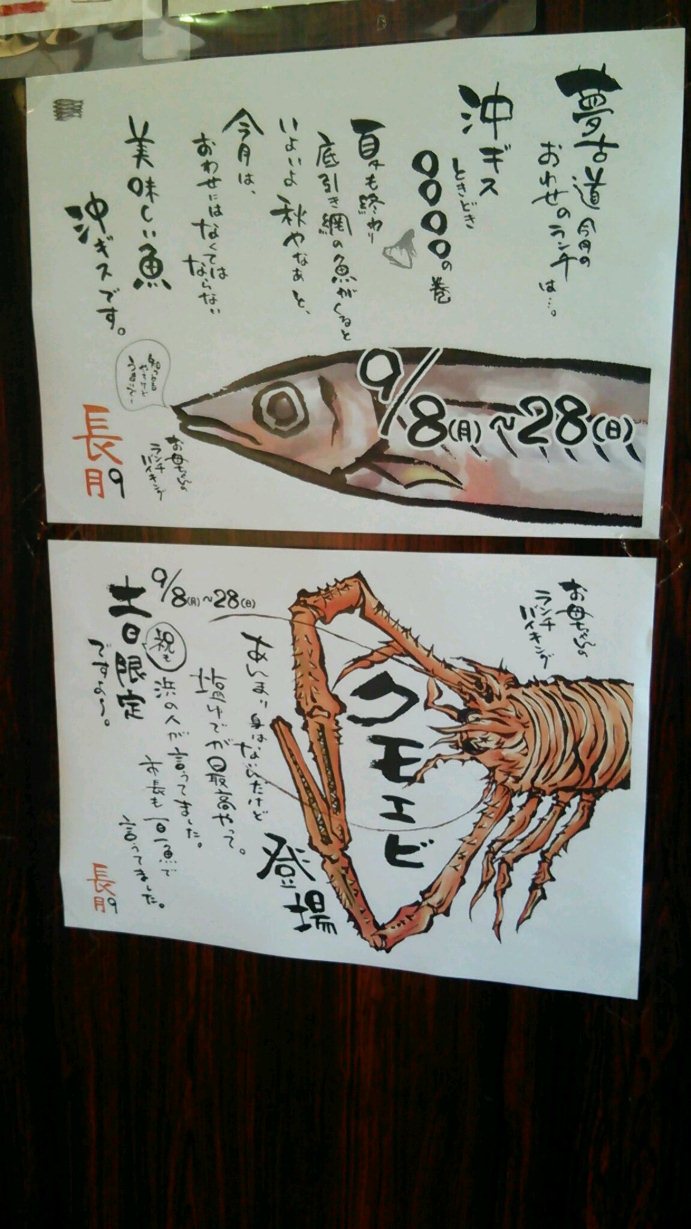 夢古道
今月の
おわせのランチは…。
沖ギス
ときどき
〇〇〇〇の巻
夏も終わり
底引き網の魚がくると
いよいよ秋やなぁと、
今月は、
おわせにはなくてはならない
美味しい魚
沖ギスです。
9/8(月)～28(日)
お母ちゃんの
ランチ
バイキング
長月9
お母ちゃんの
ランチ
バイキング
クモエビ
登場
あんまり身はないんだけど
塩ゆでが最高やって。
浜の人が言ってました。
お長も一日魚で
言ってました。
9/8(月)～28(日)
土日限定
祝も
ですよ～。
長月9